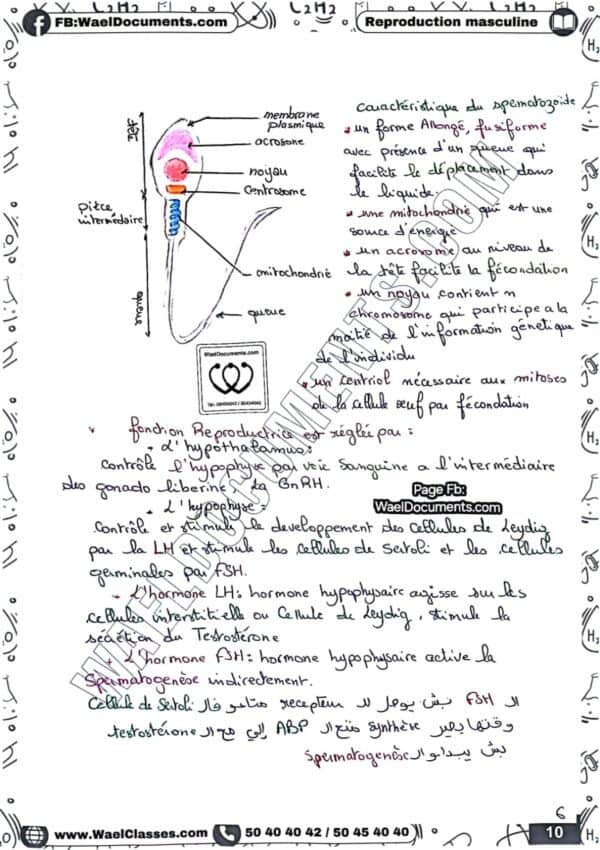 FB:WaelDocuments.com
Reproduction masculine
membrane
plasmique
acrosone
noyau
centrosome
mitochondrié
queue
tête
pièce
intermédaire
queue
WaelDocuments.com
caractéristique du spermatozoide
un forme Allongé, fusiforme
avec présence d'un queue qui
facilite le déplacement dans
le liquide.
une mitochondrie qui est une
source d'energie
un acrosome au niveau de
la tête facilite la fécondation
un noyau contient n
chromosome qui participe a la
moitié de l'information génetique
de l'individu
un centriol nécessaire aux mitoses
de la cellule oeuf par fécondation
fonction Reproductrice est réglée par :
L'hypothalamus:
contrôle l'hypophyse par voie Sanguine a l'intermédiaire
des gonado liberine la GnRH.
Page Fb:
WaelDocuments.com
L'hypophyse:
Contrôle et stimule le developpement des cellules de Leydig
par la LH et stimule les cellules de Sertoli et les cellules
germinales par FSH.
L'hormone LH: hormone hypophysaire agisse sur les
cellules interstitielle ou Cellule de Leydig, stimule la
sécrétion du Testostérone
L'hormone FSH: hormone hypophysaire active la
Spermatogenèse indirectement.
الـ FSH بش يوصل للـ recepteur متاعو فالـ Cellule de Sertoli
وقتها يصير synthèse متع الـ ABP إلي مع الـ testostérone
بش يبداو الـ spermatogenèse
WAELDOCUMENTS.COM
6
www.WaelClasses.com
50 40 40 42 / 50 45 40 40
10